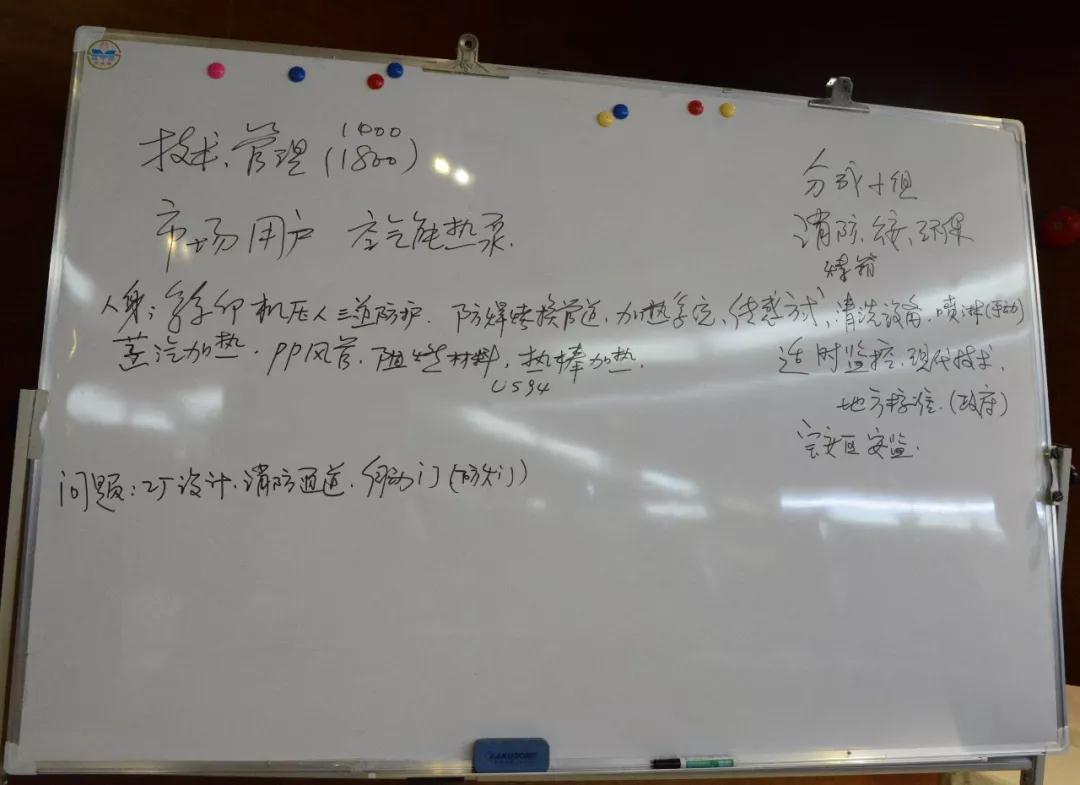 1000
技术、管理(1800)
市场用户 空气能热泵.
人身: 机压人三道防护. 防爆 换管道,加热系统、传感方式、清洗设备.喷淋(手动)
蒸汽加热. PP风管. 阻燃材料, 热棒加热.
US94
问题: 厂设计.消防通道. 门(防火门)
分成小组
消防、安、环保
烤箱
适时监控.现代技术.
地方标准.(政府)
宝安区安监.